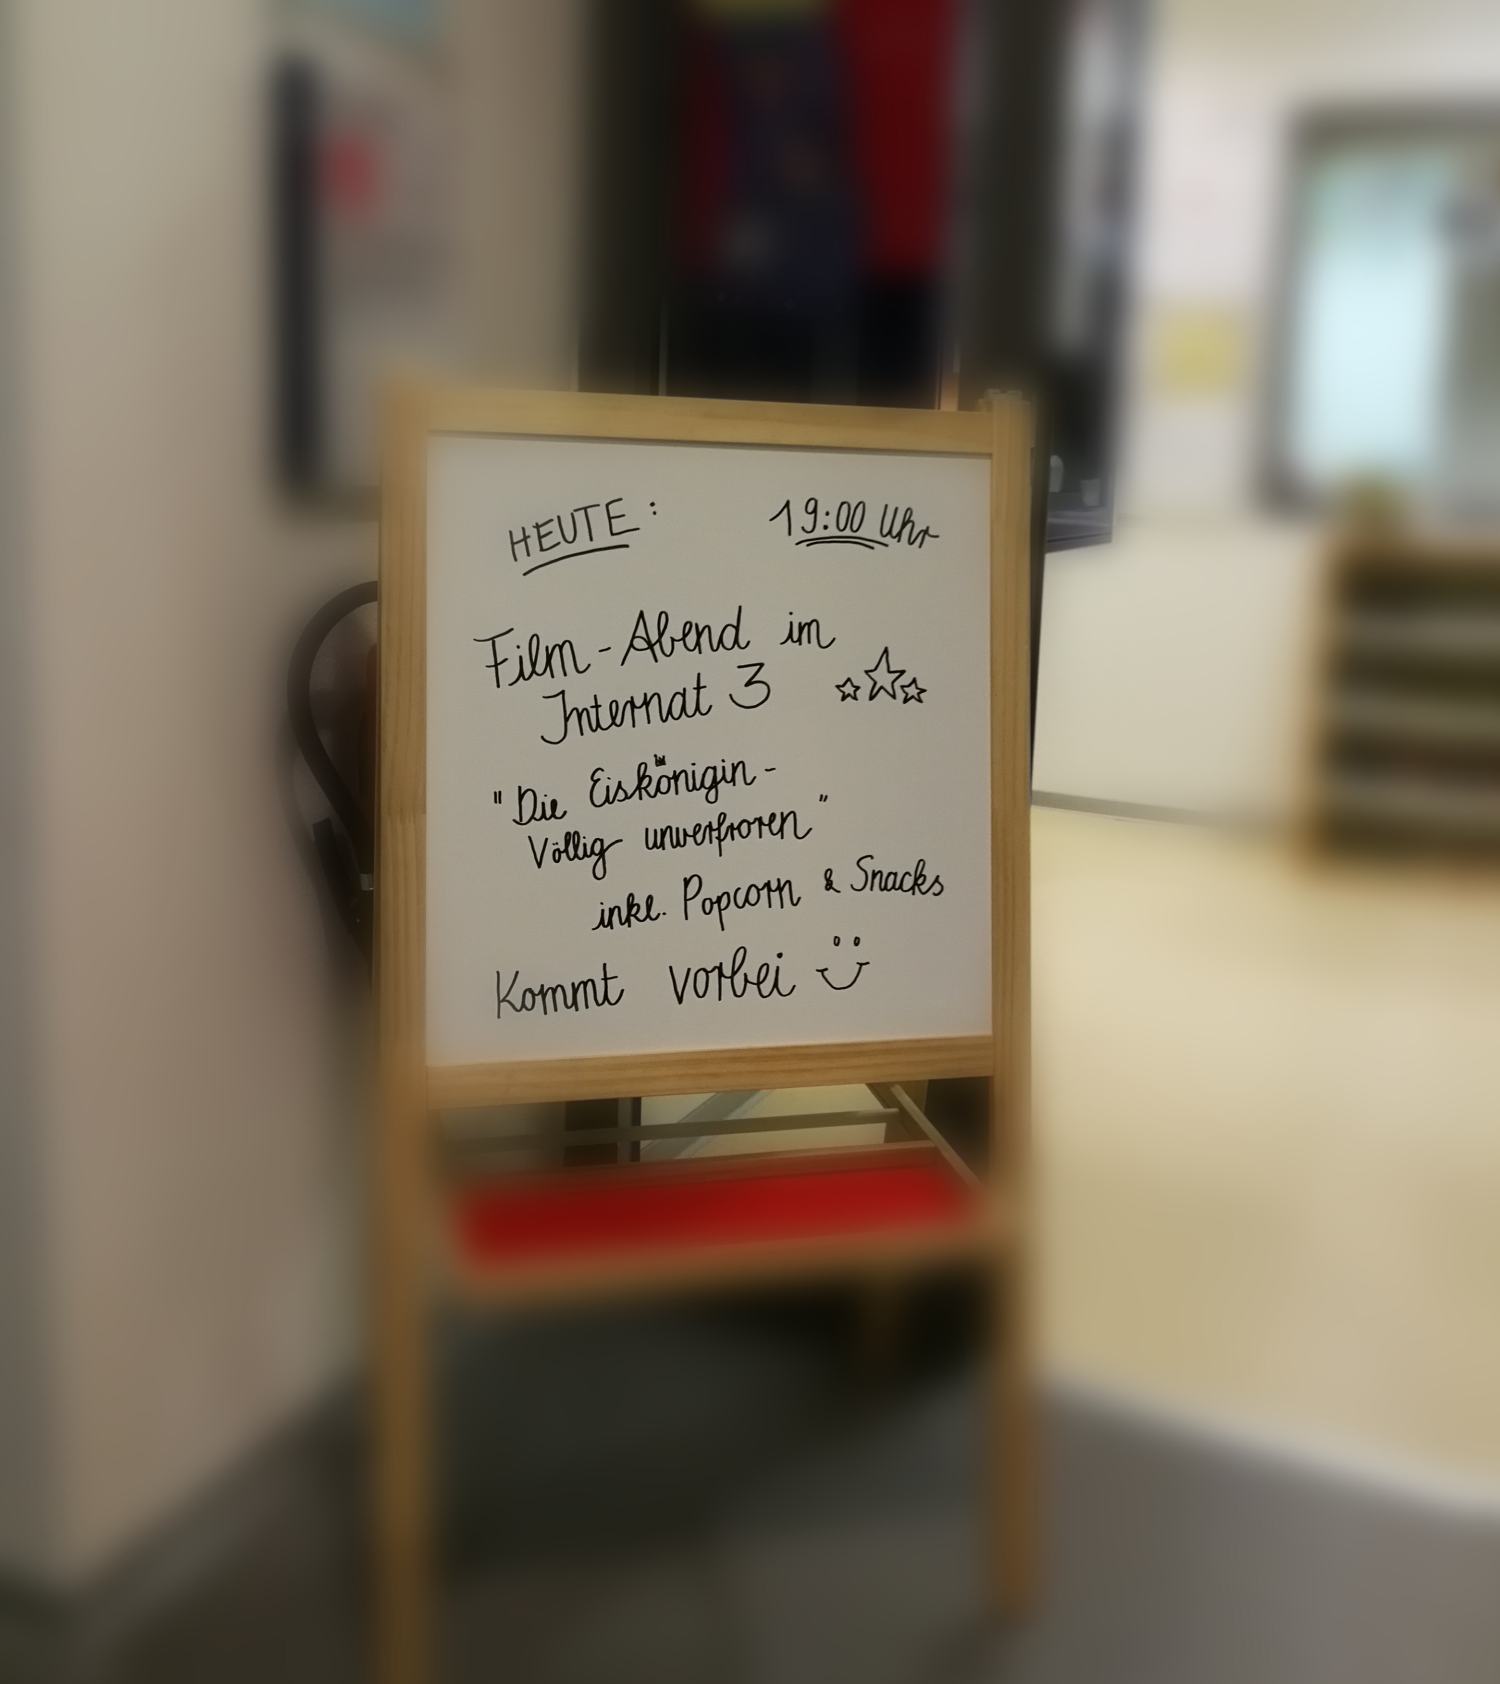 HEUTE: 19:00 Uhr
Film-Abend im
Internat 3
"Die Eiskönigin -
Völlig unverfroren"
inkl. Popcorn & Snacks
Kommt vorbei